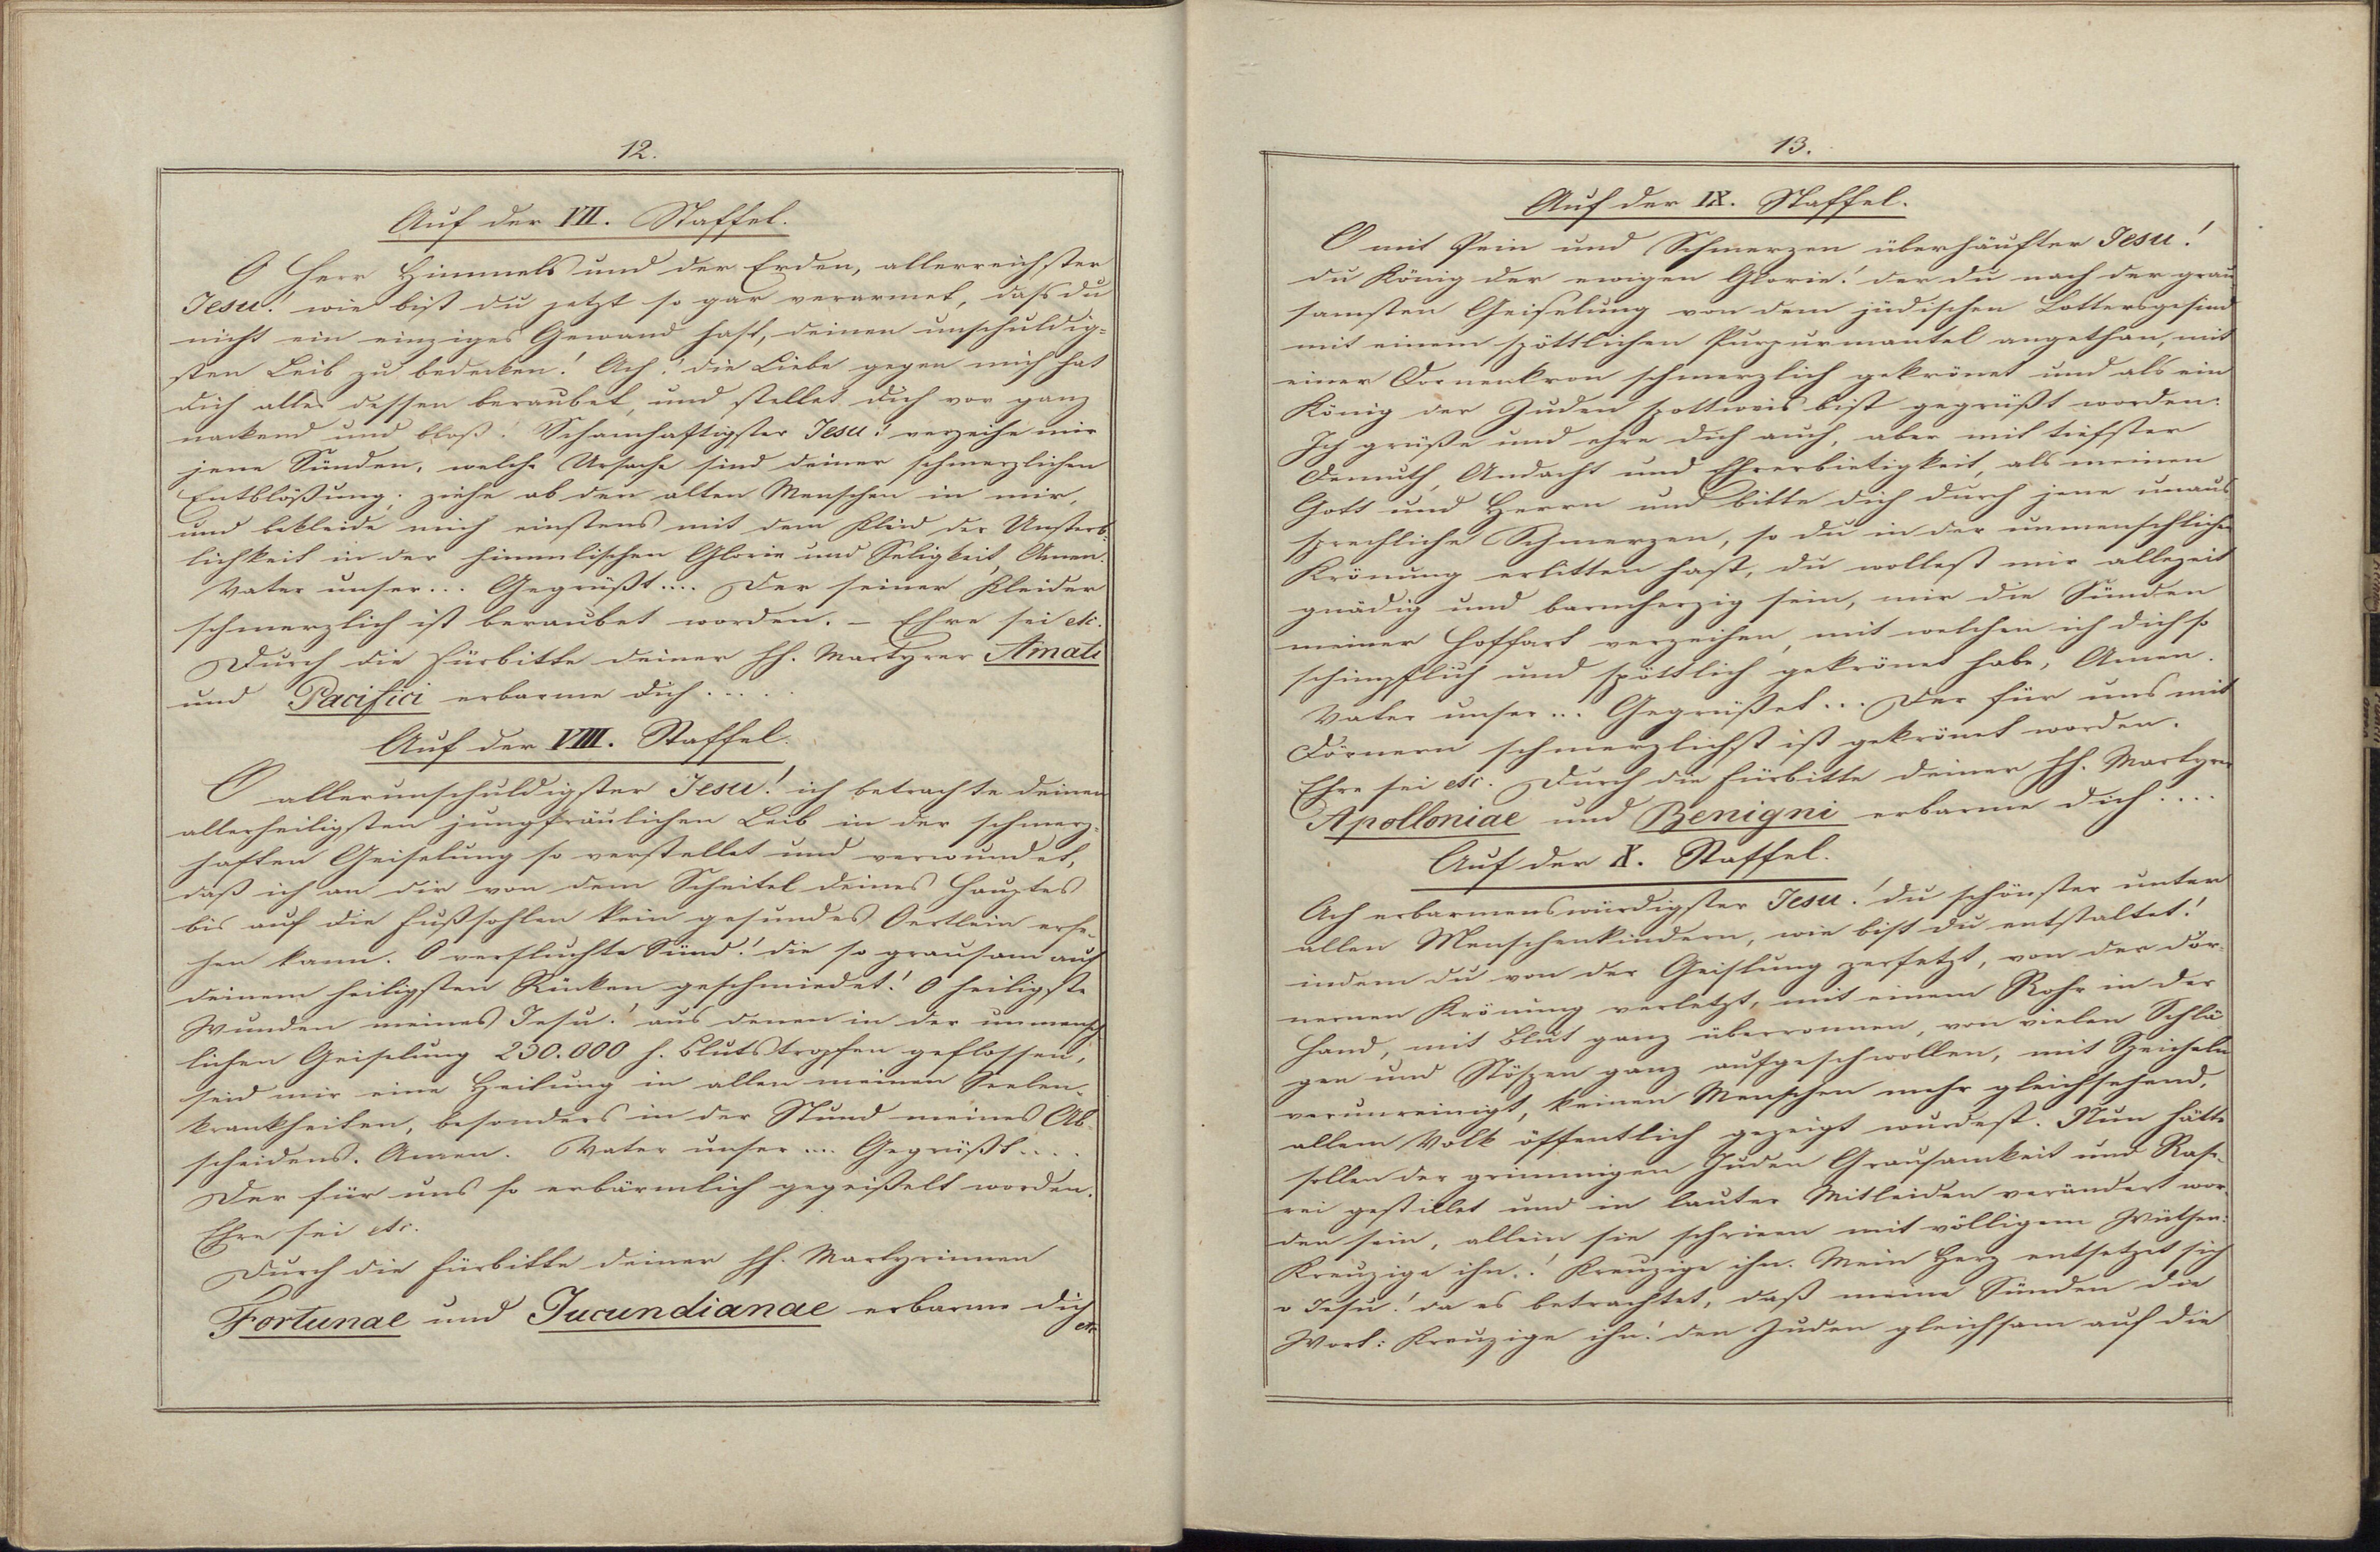 12.
Auf der VII. Staffel.
O Herr Himmels und der Erden, allerreichster
Jesu! wie bist du jetzt so gar verarmet, dass du
nicht ein einziges Gewand hast, deinen unschuldig-
sten Leib zu bedecken! Ach! die Liebe gegen mich hat
dich alles dessen beraubet, und stellet dich vor ganz
nackend und bloß. Schamhaftigster Jesu! verzeihe mir
jene Sünden, welche Ursache sind deiner schmerzlichen
Entblößung; ziehe ab den alten Menschen in mir,
und bekleide mich einstens mit dem Kleid der Unsterb-
lichkeit in der himmlischen Glorie und Seligkeit, Amen.
Vater unser... Gegrüßt.... Der seiner Kleider
schmerzlich ist beraubet worden. – Ehre sei etc.
Durch die Fürbitte deiner hh. Martyrer Amati
und Pacifici erbarme dich....
Auf der VIII. Staffel.
O allerunschuldigster Jesu! ich betrachte deinen
allerheiligsten jungfräulichen Leib in der schmerz-
haften Geiselung so verstellet und verwundet,
daß ich an dir von dem Scheitel deines Hauptes
bis auf die Fußsohlen kein gesundes Oertlein erse-
hen kann. O verfluchte Sünd! die so grausam auf
deinem heiligsten Rücken geschmiedet! O heiligste
Wunden meines Jesu! aus denen in der unmensch-
lichen Geiselung 230.000 h. Blutstropfen geflossen,
seid mir eine Heilung in allen meinen Seelen-
krankheiten, besonders in der Stund meines Ab-
scheidens. Amen. Vater unser... Gegrüßt....
Der für uns so erbärmlich gegeißelt worden.
Ehre sei etc.
Durch die Fürbitte deiner hh. Martyrinnen
Fortunae und Jucundianae erbarme dich
etc
13.
Auf der IX. Staffel.
O mit Pein und Schmerzen überhäufter Jesu!
du König der ewigen Glorie! der du nach der grau-
samsten Geiselung von dem jüdischen Lottersgesind
mit einem spöttlichen Purpurmantel angethan, mit
einer Dornenkron schmerzlich gekrönet und als ein
König der Juden spottweis bist gegrüßt worden:
Ich grüße und ehre dich auch, aber mit tiefster
Demuth, Andacht und Ehrerbietigkeit, als meinen
Gott und Herrn und bitte dich durch jene unaus-
sprechliche Schmerzen, so du in der unmenschlichen
Krönung erlitten hast, du wollest mir allezeit
gnädig und barmherzig sein, mir die Sünden
meiner Hoffart verzeihen, mit welchen ich dich so
schimpflich und spöttlich gekrönet habe, Amen.
Vater unser... Gegrüßet... Der für uns mit
Dörnern schmerzlichst ist gekrönet worden.
Ehre sei etc. Durch die Fürbitte deiner hh. Martyrer
Apolloniae und Benigni erbarme dich....
Auf der X. Staffel.
Ach erbarmenswürdigster Jesu! du schönster unter
allen Menschenkindern, wie bist du entstaltet!
indem du von der Geislung zerfetzt, von der dör-
nernen Krönung verletzt, mit einem Rohr in der
Hand, mit Blut ganz überronnen, von vielen Schlä-
gen und Stößen ganz aufgeschwollen, mit Speicheln
verunreinigt, keinen Menschen mehr gleichsehend,
allem Volk öffentlich gezeigt wurdest. Nun hätte
sollen der grimmigen Juden Grausamkeit und Rase-
rei gestillet und in lauter Mitleiden verändert wor-
den sein, allein sie schrieen mit völligem Wüthen:
Kreuzige ihn! Kreuzige ihn. Mein Herz entsetzet sich
o Jesu! da es betrachtet, daß meine Sünden die
Wort: Kreuzige ihn! den Juden gleichsam auf die